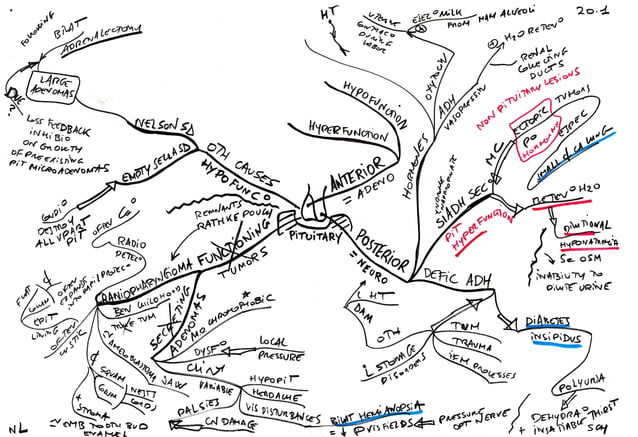 20.1
FOLLOWING
BILAT
ADRENALECTOMY
LARGE
ADENOMAS
DUE
?
LOSS FEEDBACK
INHIBIO
ON GROWTH
OF PREEXISTING
PIT MICROADENOMAS
NELSON SD
EMPTY SELLA SD
DESTROY
ALL V PART
PIT
OTH CAUSES
HYPOFUNCO
HT
HYPOFUNCTION
HYPERFUNCTION
ANTERIOR
= ADENO
PITUITARY
POSTERIOR
= NEURO
HORMONES
OXYTOCIN
UTERINE
DURING
LABOR
EJECO MILK
FROM MAM ALVEOLI
ADH
VASOPRESSIN
H2O RETENO
RENAL
COLLECTING
DUCTS
SIADH SECO
NON PITUITARY LESIONS
MC
ECTOPIC
PO
HORMONES
TUMORS
ESPEC
SMALL  CA LUNG
PIT
HYPERFUNCTION
RETENO H2O
DILUTIONAL
HYPONATREMIA
↓ SE OSM
INABILITY TO
DILUTE URINE
DEFIC ADH
HT
DAM
OTH
↓ STORAGE
DISORDERS
TUM
TRAUMA
IEM PROCESSES
DIABETES
INSIPIDUS
POLYURIA
DEHYDRAO
+ INSATIABLE THIRST
REMNANTS
RATHKE POUCH
FUNCTIONING
TUMORS
CRANIOPHARYNGIOMA
OFTEN CO
RADIO
DETECO
FLAT
EPIT
LINING
OFTEN
CYSTIC
BEN CHILDHOOD
TUM
AMELOBLASTOMA JAW
SQUAM
STROMA
≈ EMB TOOTH BUD
ENAMEL
SECRETING
ADENOMAS
MC CHROMOPHOBIC
DYSFO
LOCAL
PRESSURE
CLIN
VARIABLE
HYPOPIT
HEADACHE
VIS DISTURBANCES
PALSIES
CN DAMAGE
BILAT HEMIANOPSIA
= ↓ P VIS FIELDS
PRESSING
OPT NERVE
NL